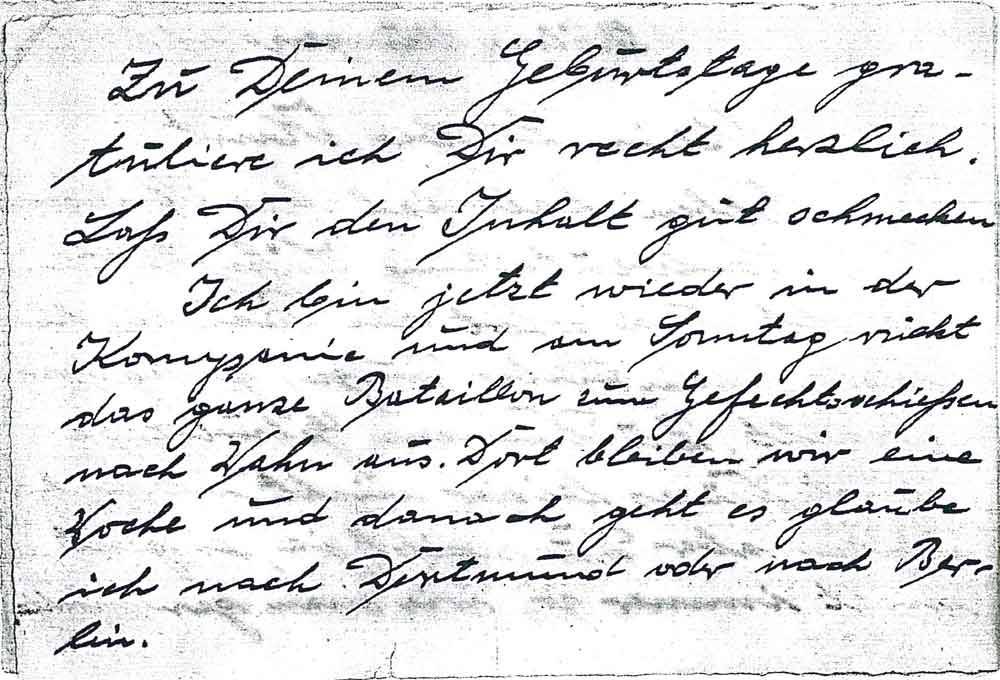 Zu Deinem Geburtstage gra-
tuliere ich Dir recht herzlich.
Laß Dir den Inhalt gut schmecken
Ich bin jetzt wieder in der
Kompanie und am Sonntag rückt
das ganze Bataillon zum Gefechtsschießen
nach Wahn aus. Dort bleiben wir eine
Woche und danach geht es glaube
ich nach Dortmund oder nach Ber-
lin.